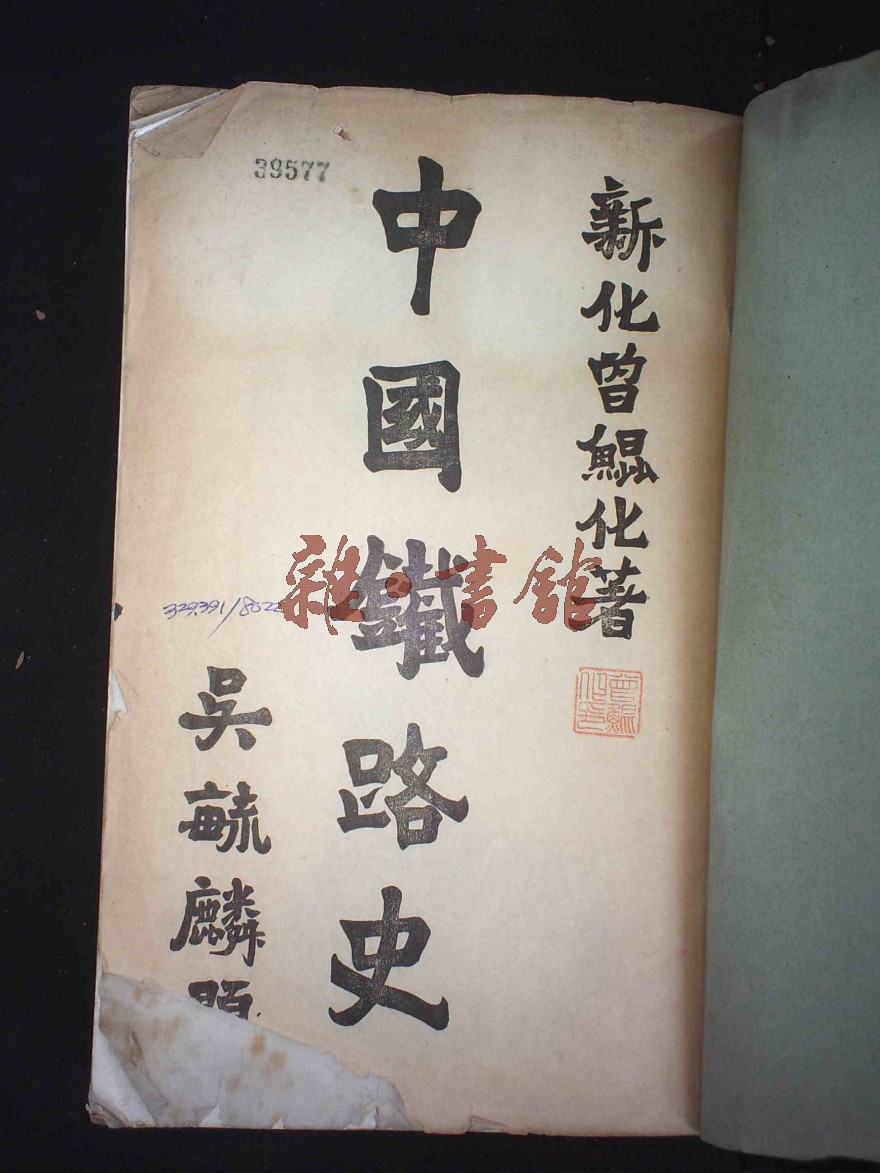 新化曾鯤化著
中國鐵路史
吳毓麟題
39577
329391/8022
雜·書館